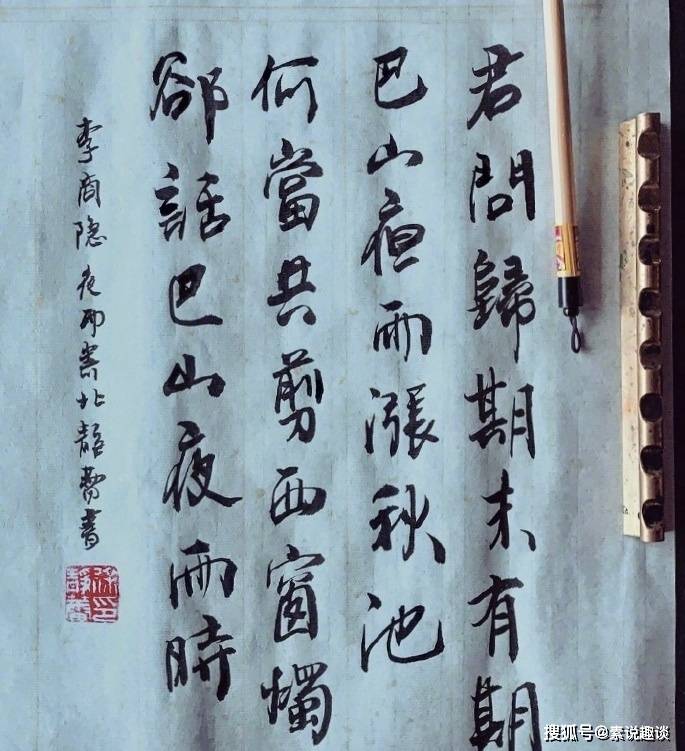 君問歸期未有期
巴山夜雨漲秋池
何當共剪西窗燭
卻話巴山夜雨時
李商隐 夜雨寄北 静费書
搜狐号@素说趣谈